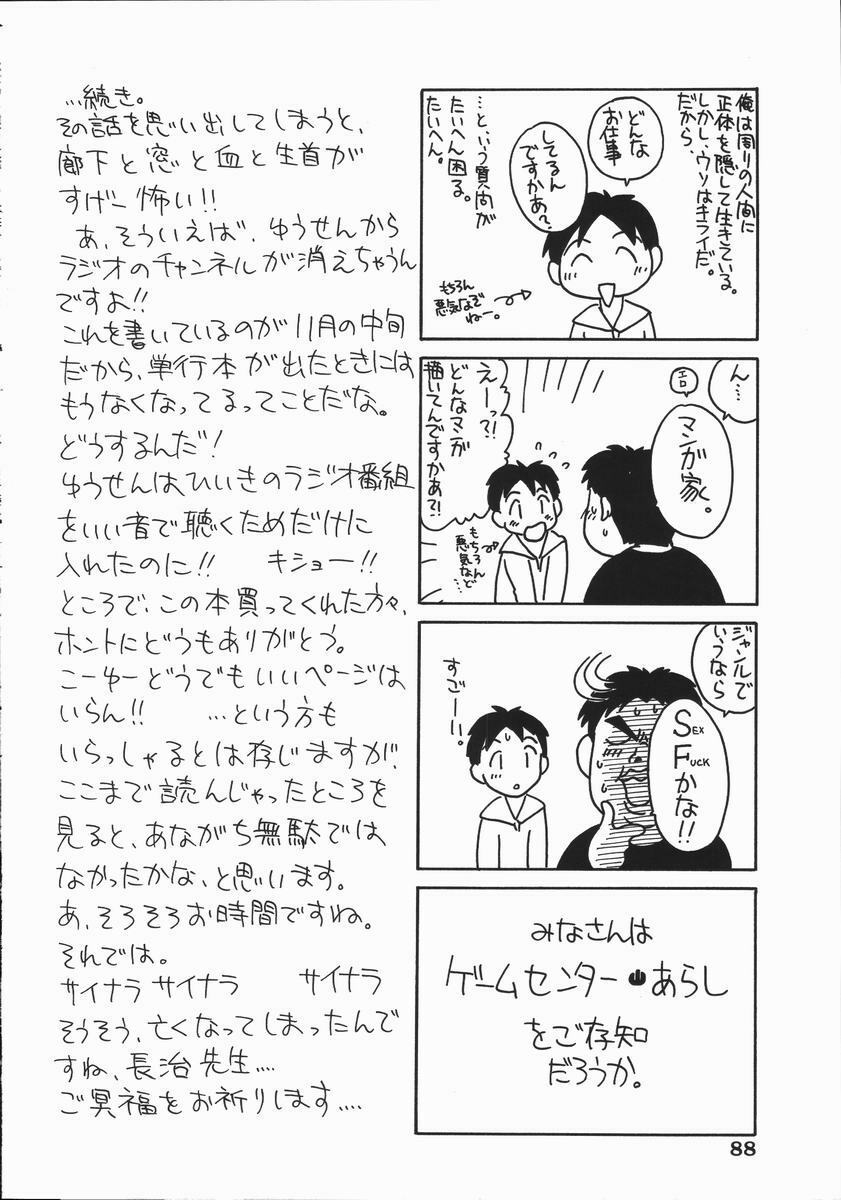 …続き。
その話を思い出してしまうと、
廊下と窓と血と生首が
すげー怖い!!
あ、そういえば、ゆうせんから
ラジオのチャンネルが消えちゃうん
ですよ!!
これを書いているのが11月の中旬
だから、単行本が出たときには
もうなくなってるってことだな。
どうするんだ!
ゆうせんはひいきのラジオ番組
をいい音で聴くためだけに
入れたのに!! キショー!!
ところで、この本買ってくれた方々、
ホントにどうもありがとう。
こーゆーどうでもいいページは
いらん!! …という方も
いらっしゃるとは存じますが、
ここまで読んじゃったところを
見ると、あながち無駄では
なかったかな、と思います。
あ、そろそろお時間ですね。
それでは。
サイナラ サイナラ サイナラ
そうそう、亡くなってしまったんで
すね、長治先生…
ご冥福をお祈りします…
俺は周りの人間に
正体を隠して生きている。
しかし、ウソはキライだ。
だから、
どんな
お仕事
してるん
ですかあ?
…という質問が
たいへん困る。
たいへん。
もちろん
悪気なぞ
ねー。
ん…
エロ
マンガ家。
えーっ?!
どんなマンガ
描いてんですかあ?!
もちろん
悪気など
…
ジャンルで
いうなら
SEX
FUCK
かな!!
すごーい。
みなさんは
ゲームセンターあらし
をご存知
だろうか。
88